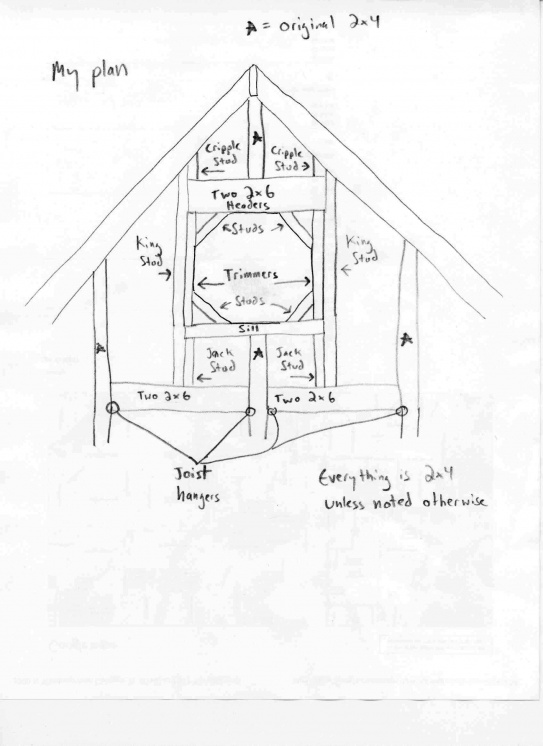 A = original 2x4
My plan
A
Cripple
Stud
Cripple
Stud
Two 2x6
Headers
Studs
King
Stud
King
Stud
Trimmers
Studs
Sill
A
Jack
Stud
A
Jack
Stud
A
Two 2x6
Two 2x6
Joist
hangers
Everything is 2x4
unless noted otherwise